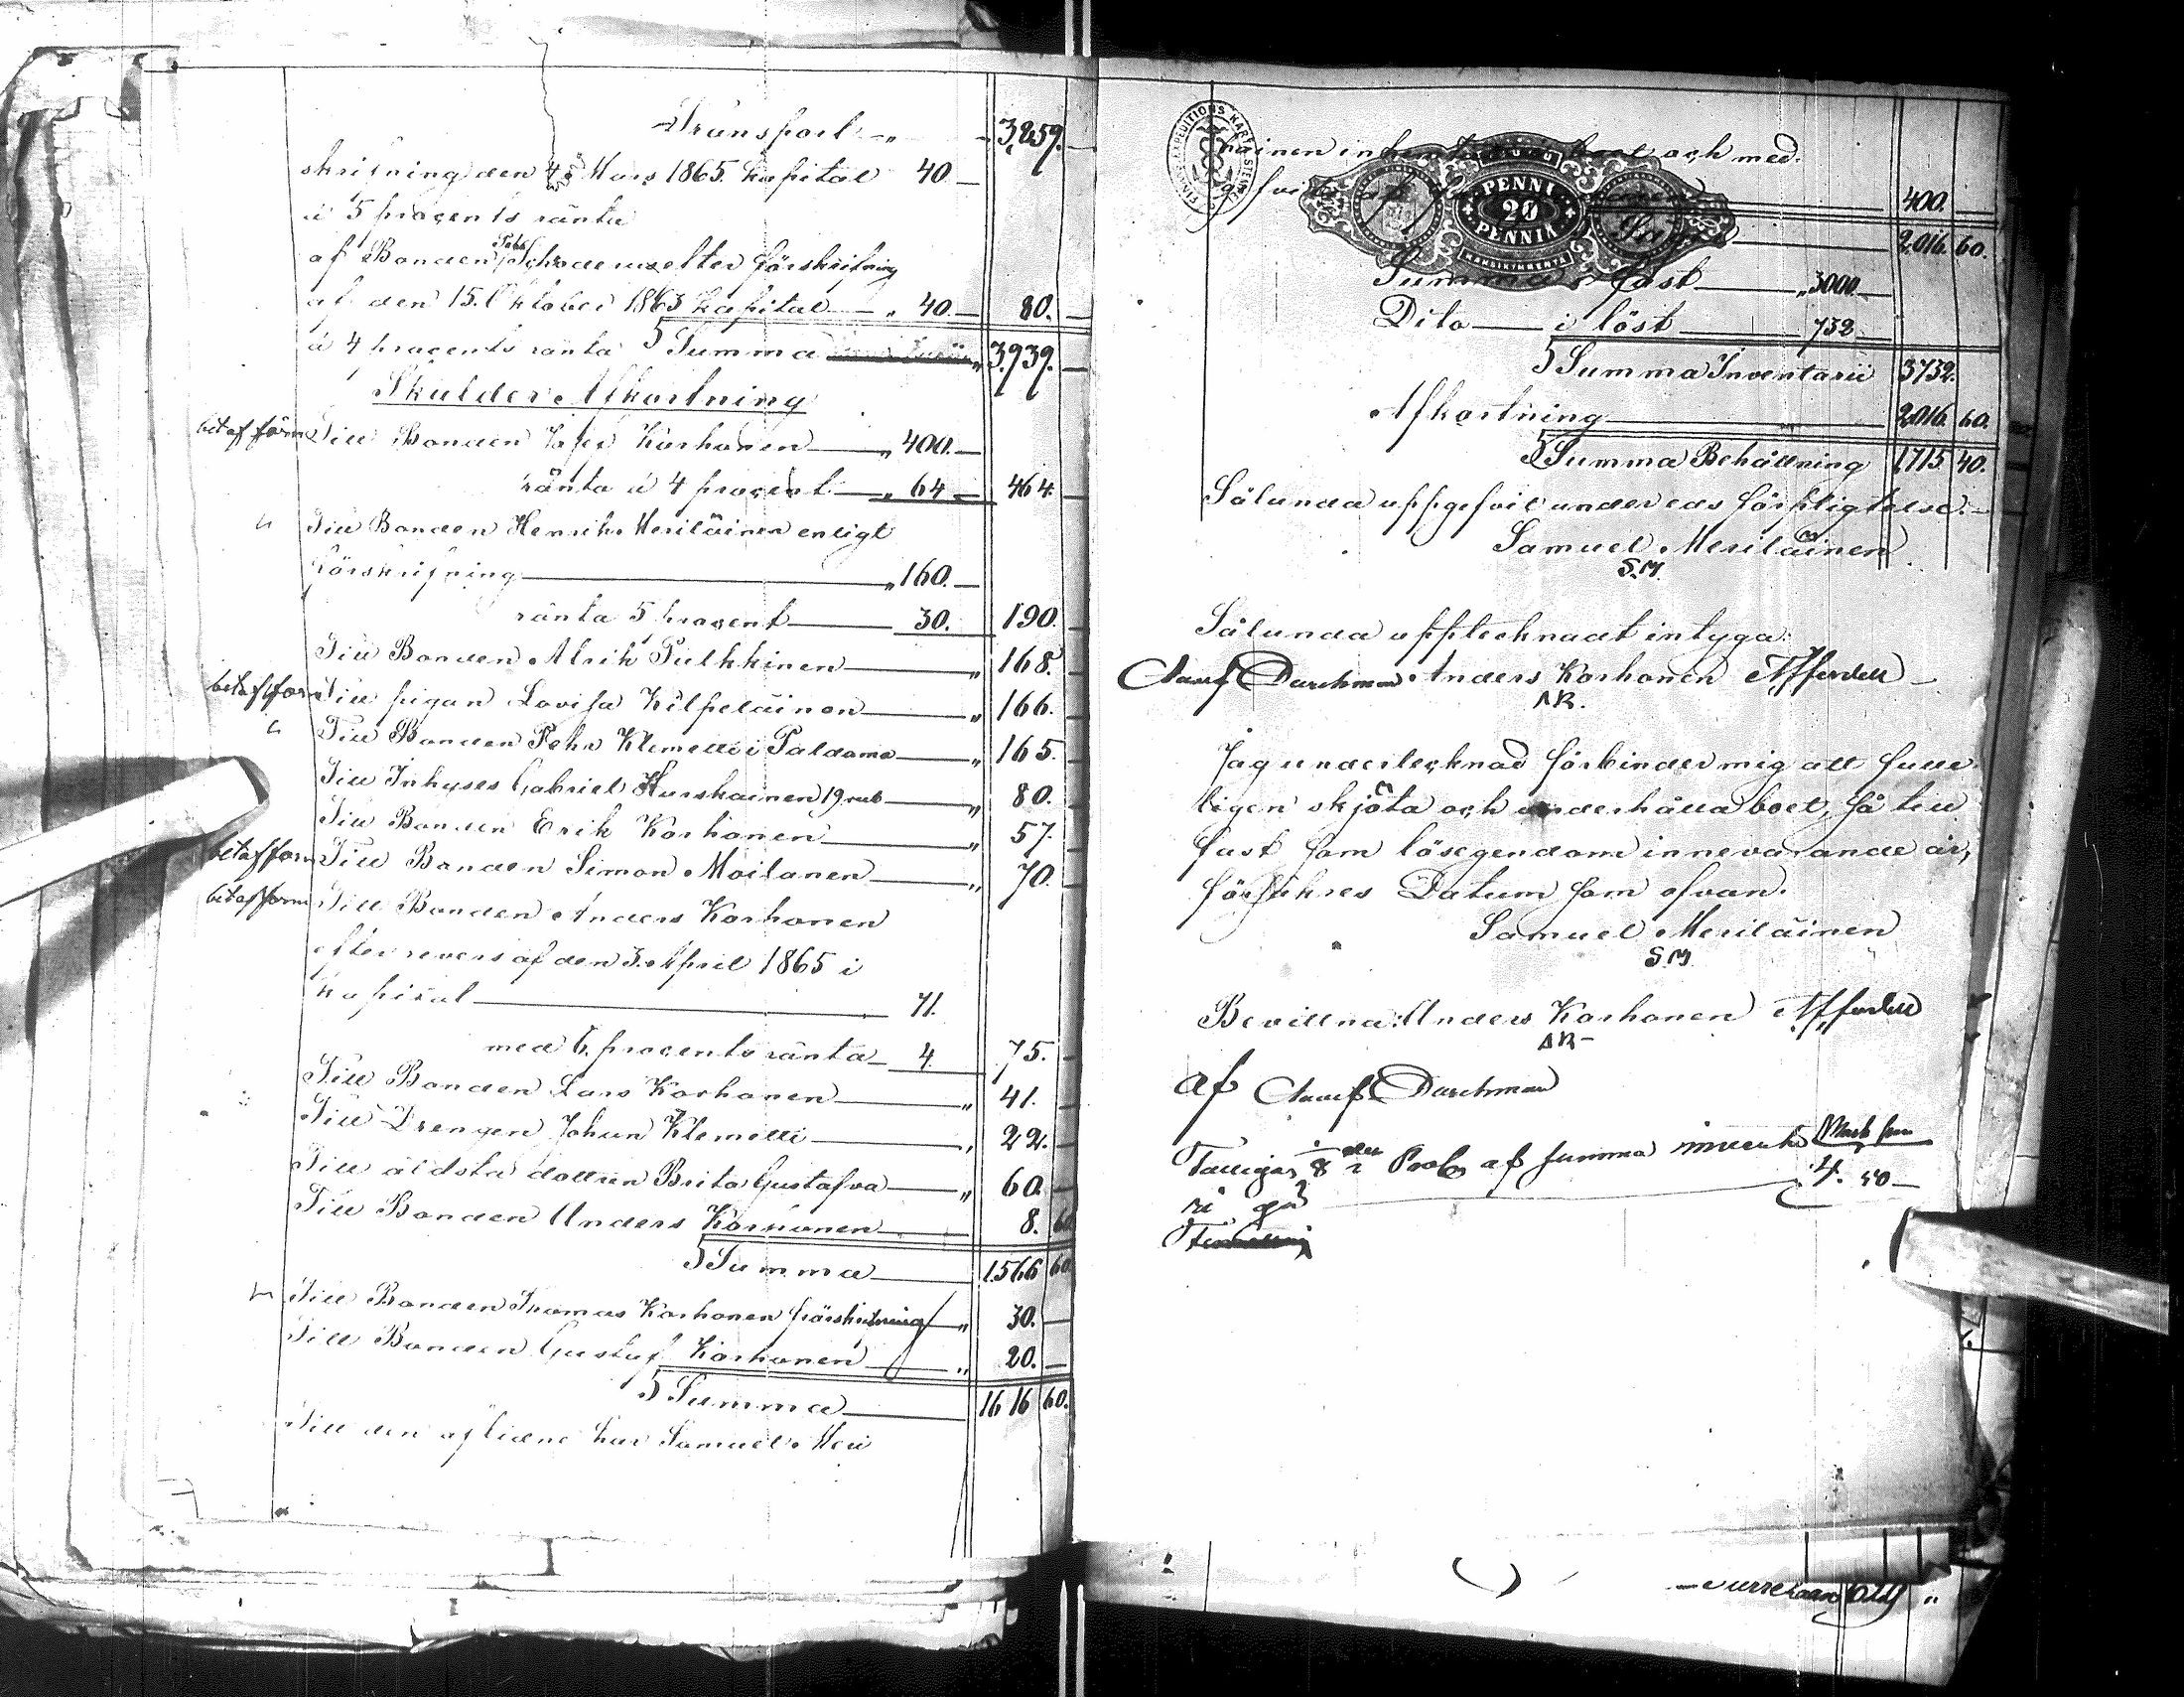 Transport 3,859.
skrifning den 4 Mars 1865 kapital 40
à 5 procents ränta
af Bonden Pehr Schroderus efter förskrifning
af den 15 Oktober 1863 kapital 40 80.
à 4 procents ränta Summa 3,939.
Skulder Afkortning
bet af förm Till Bonden Korhonen 400.
ränta à 4 procent 64 464
" Till Bonden Henrik Meriläinen enligt
Förskrifning 160.
ränta 5 procent 30. 190.
Till Bonden Alrik Pulkkinen 168.
betaf form Till pigan Lovisa Kilpeläinen 166.
" Till Bonden Pehr Klemetti i Paldamo 165.
Till Inhyses Gabriel Hurskainen 19 rub 80.
Till Bonden Erik Korhonen 57.
betaf form Till Bonden Simon Moilanen 70.
betaf form Till Bonden Anders Korhonen
efter revers af den 3 April 1865 i
kapital 71.
med 6 procents ränta 4. 75.
Till Bonden Lars Korhonen 41.
Till Drengen Johan Klemetti 22.
Till äldsta dottren Brita Gustafva 60.
Till Bonden Anders Korhonen 8. 60
Summa 1566 60
Till Bonden Thomas Korhonen förskrifning 30.
Till Bonden Gustaf Korhonen 20.
Summa 1616 60.
Till den aflidne har Samuel Meri
läinen och med
400.
PENNI 20 PENNIÄ
2,016. 60.
Summa i fast 3000
Dito i löst 732
Summa Inventarii 3732.
Afkortning 2,016. 60.
Summa Behållning 1,715 40.
Sålunda uppgifvit under eds förpligtelse.
Samuel Meriläinen
S.M.
Sålunda upptecknadt intyga:
Durchman Anders Korhonen
AK.
Jag undertecknad förbinder mig att full
ligen skjöta och underhålla boet, så till
fast som lösegendom innevarande år,
försäkres Datum som ofvan.
Samuel Meriläinen
S.M.
Bevittna: Anders Korhonen
AK
af Durchman
Fattigas 8 af summa
4. 50